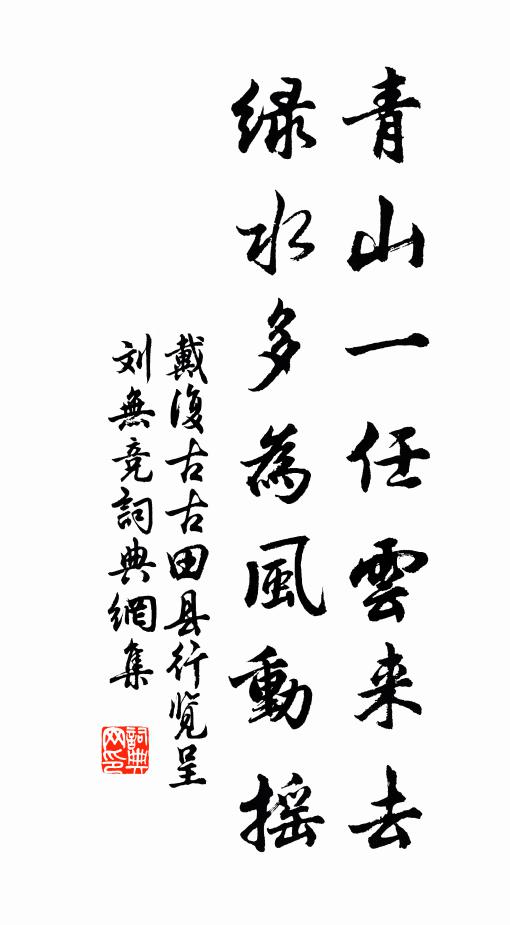 青山一任雲来去
緑水多為風動摇
戴復古古田县行覧呈
刘無竞詞典網集
詞典網印